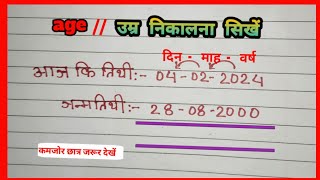 age // उम्र निकालना सिखें
दिन - माह - वर्ष
आज कि तिथी:- 04-02-2024
जन्मतिथी:- 28-08-2000
कमजोर छात्र जरूर देखें